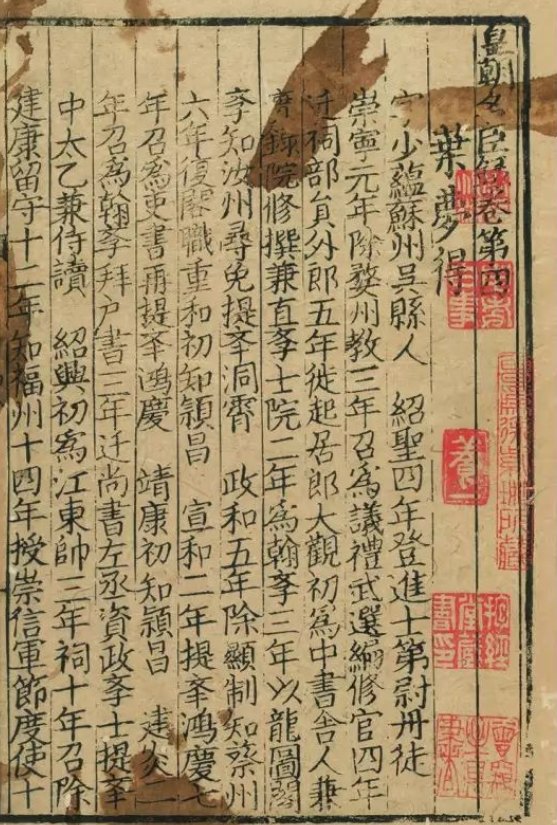 皇朝臣卷第四
葉夢得
字少蘊蘇州吳縣人　紹聖四年登進士第尉丹徒
崇寧元年除婺州教三年召爲議禮武選編修官四年
迁祠部員外郎五年從起居郎大觀初爲中書舍人兼
錄院修撰兼直斈士院二年爲翰斈三年以龍圖閣
斈知汝州尋免提举洞霄　政和五年除顯制知蔡州
六年復閣職重和初知潁昌　宣和二年提举鴻慶七
年召爲吏書再提举鴻慶　靖康初知潁昌　建炎
年召爲翰斈拜户書三年迁尚書左丞資政斈士提举
中太乙兼侍讀　紹興初爲江東帥三年祠十年召除
建康留守十二年知福州十四年授崇信軍節度使十
養一
抱經堂藏書印